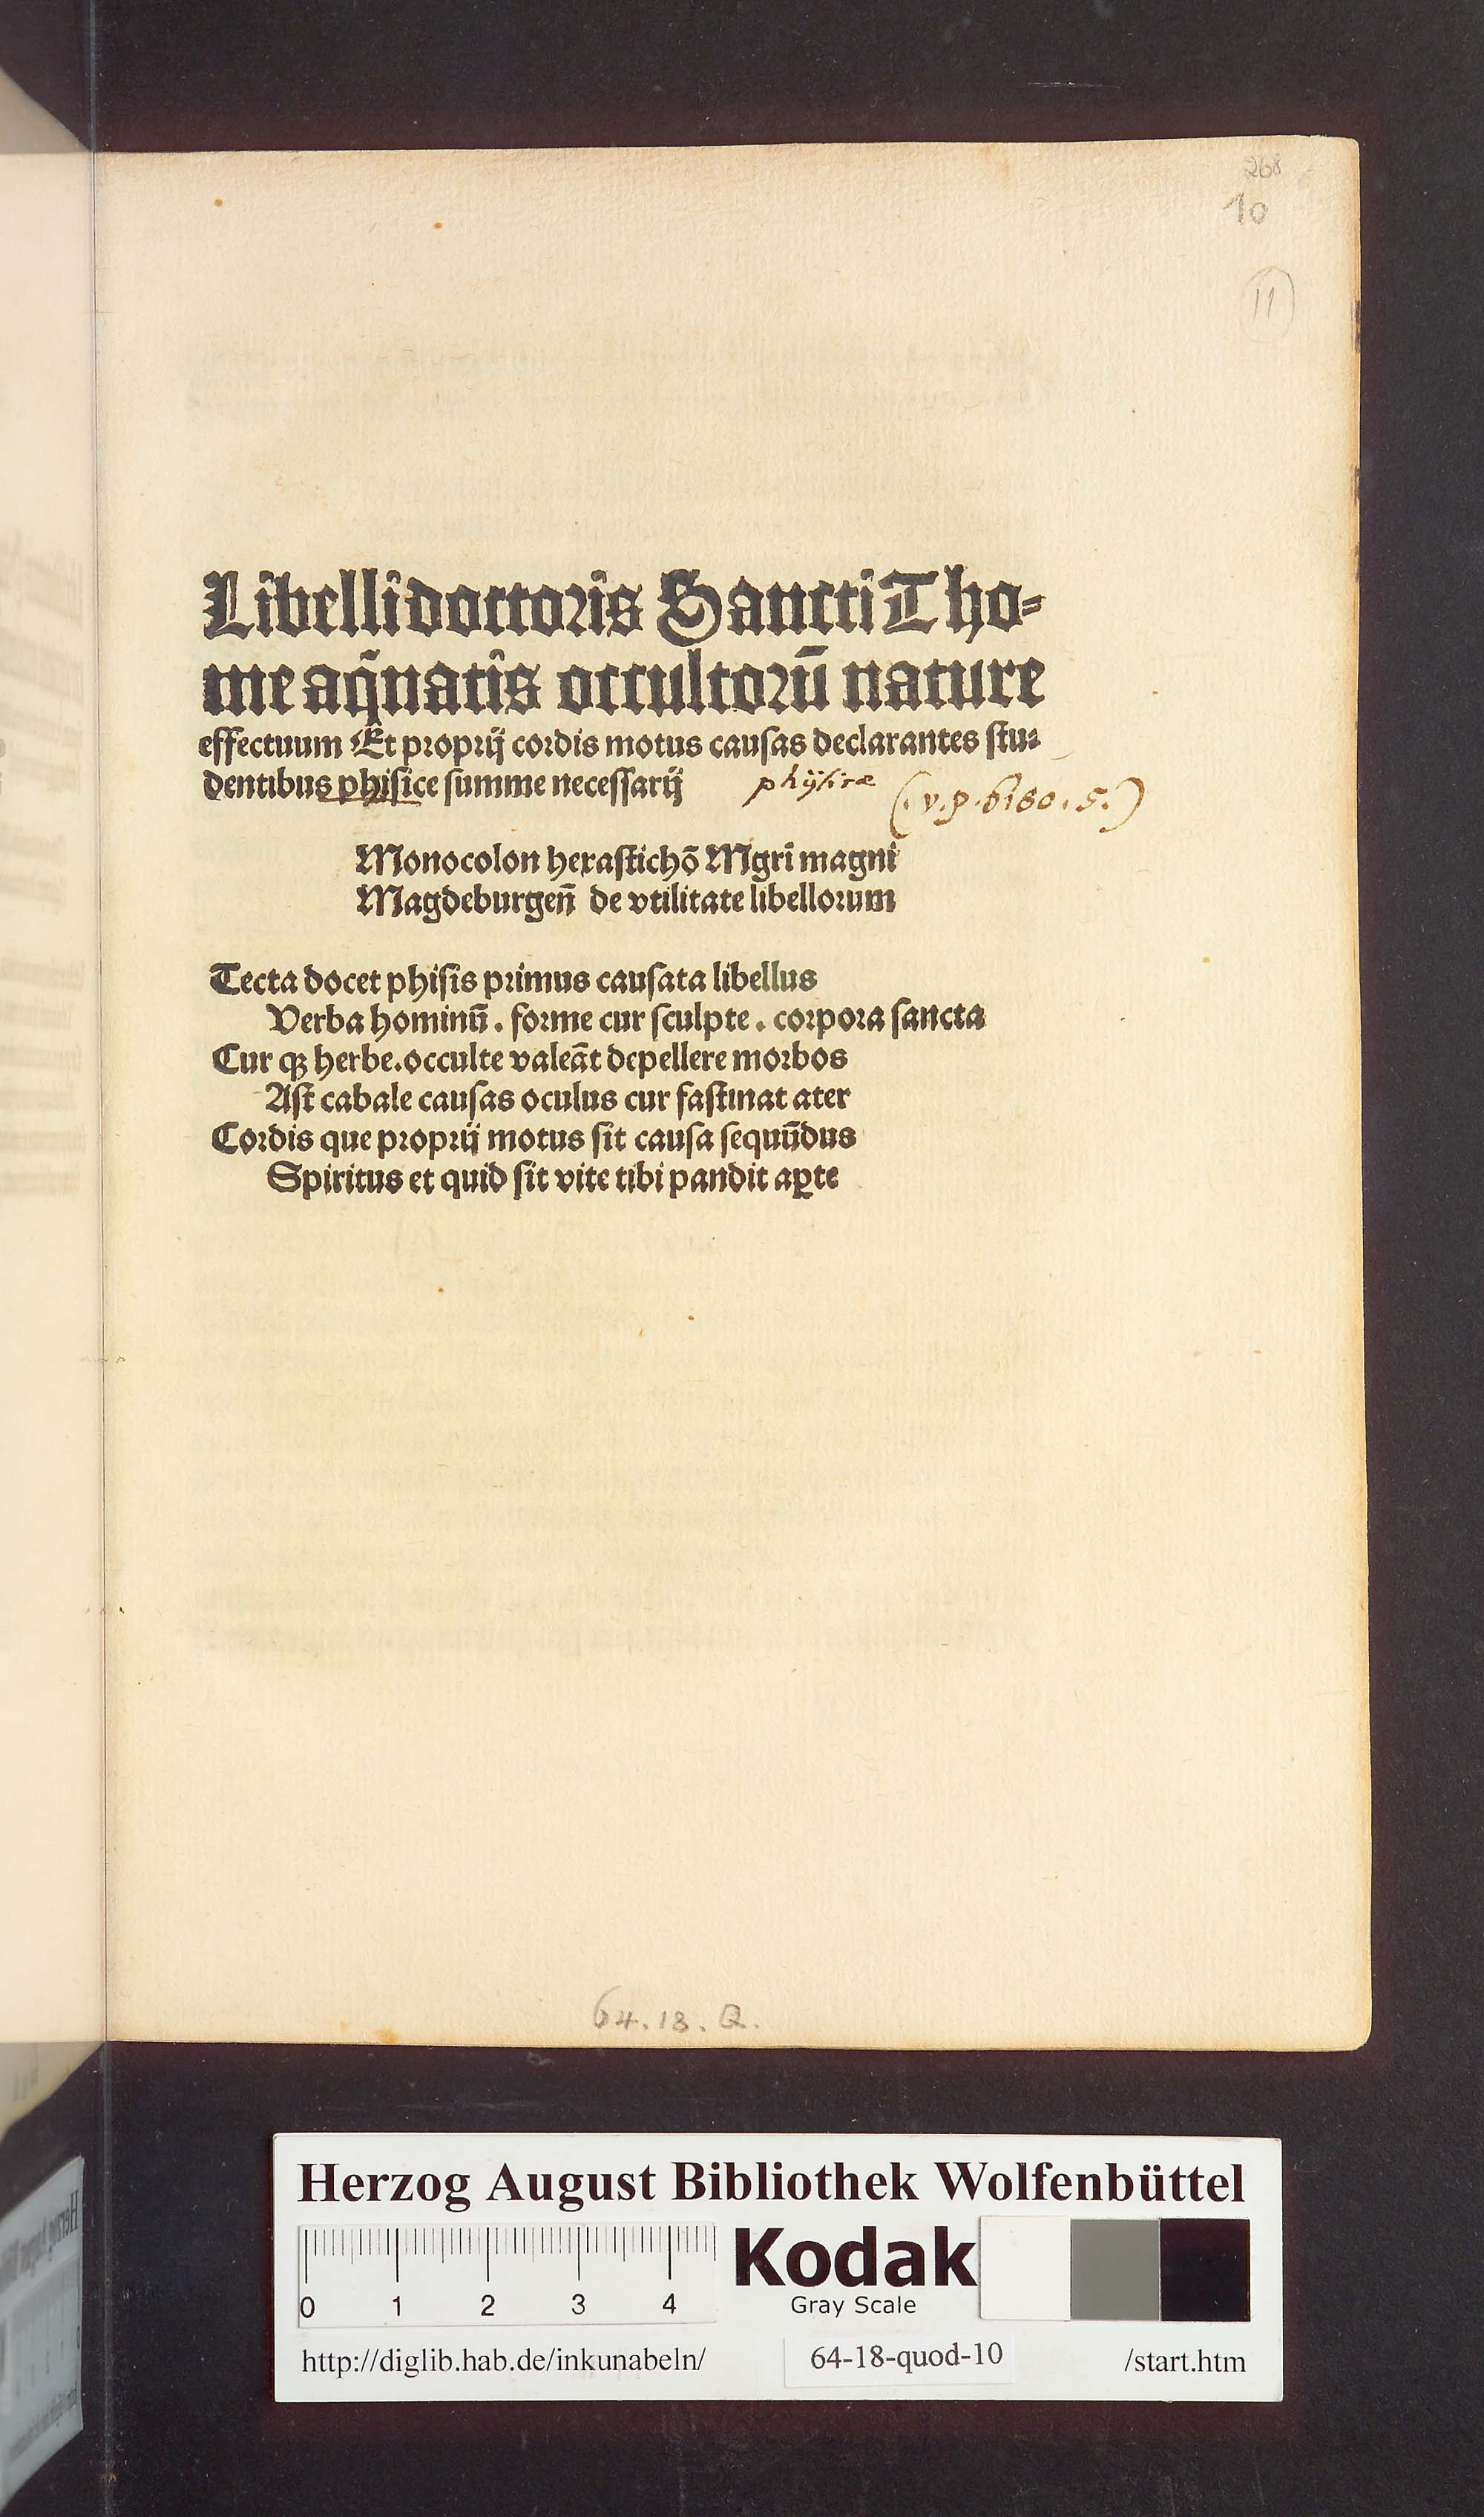 268
10
11
Libelli doctoris Sancti Tho-
me aq̄natis occultorū nature
effectuum Et proprij cordis motus causas declarantes stu-
dentibus phisice summe necessarij phÿsicæ
Monocolon hexastichō Mgri magni
Magdeburgen̄ de vtilitate libellorum
Tecta docet phisis primus causata libellus
Verba hominū. forme cur sculpte. corpora sancta
Cur qꝫ herbe. occulte valeāt depellere morbos
Ast cabale causas oculus cur fastinat ater
Cordis que proprij motus sit causa sequūdus
Spiritus et quid sit vite tibi pandit aꝑte
64. 18. Q.
Herzog August Bibliothek Wolfenbüttel
Kodak
Gray Scale
0 1 2 3 4
http://diglib.hab.de/inkunabeln/ 64-18-quod-10 /start.htm